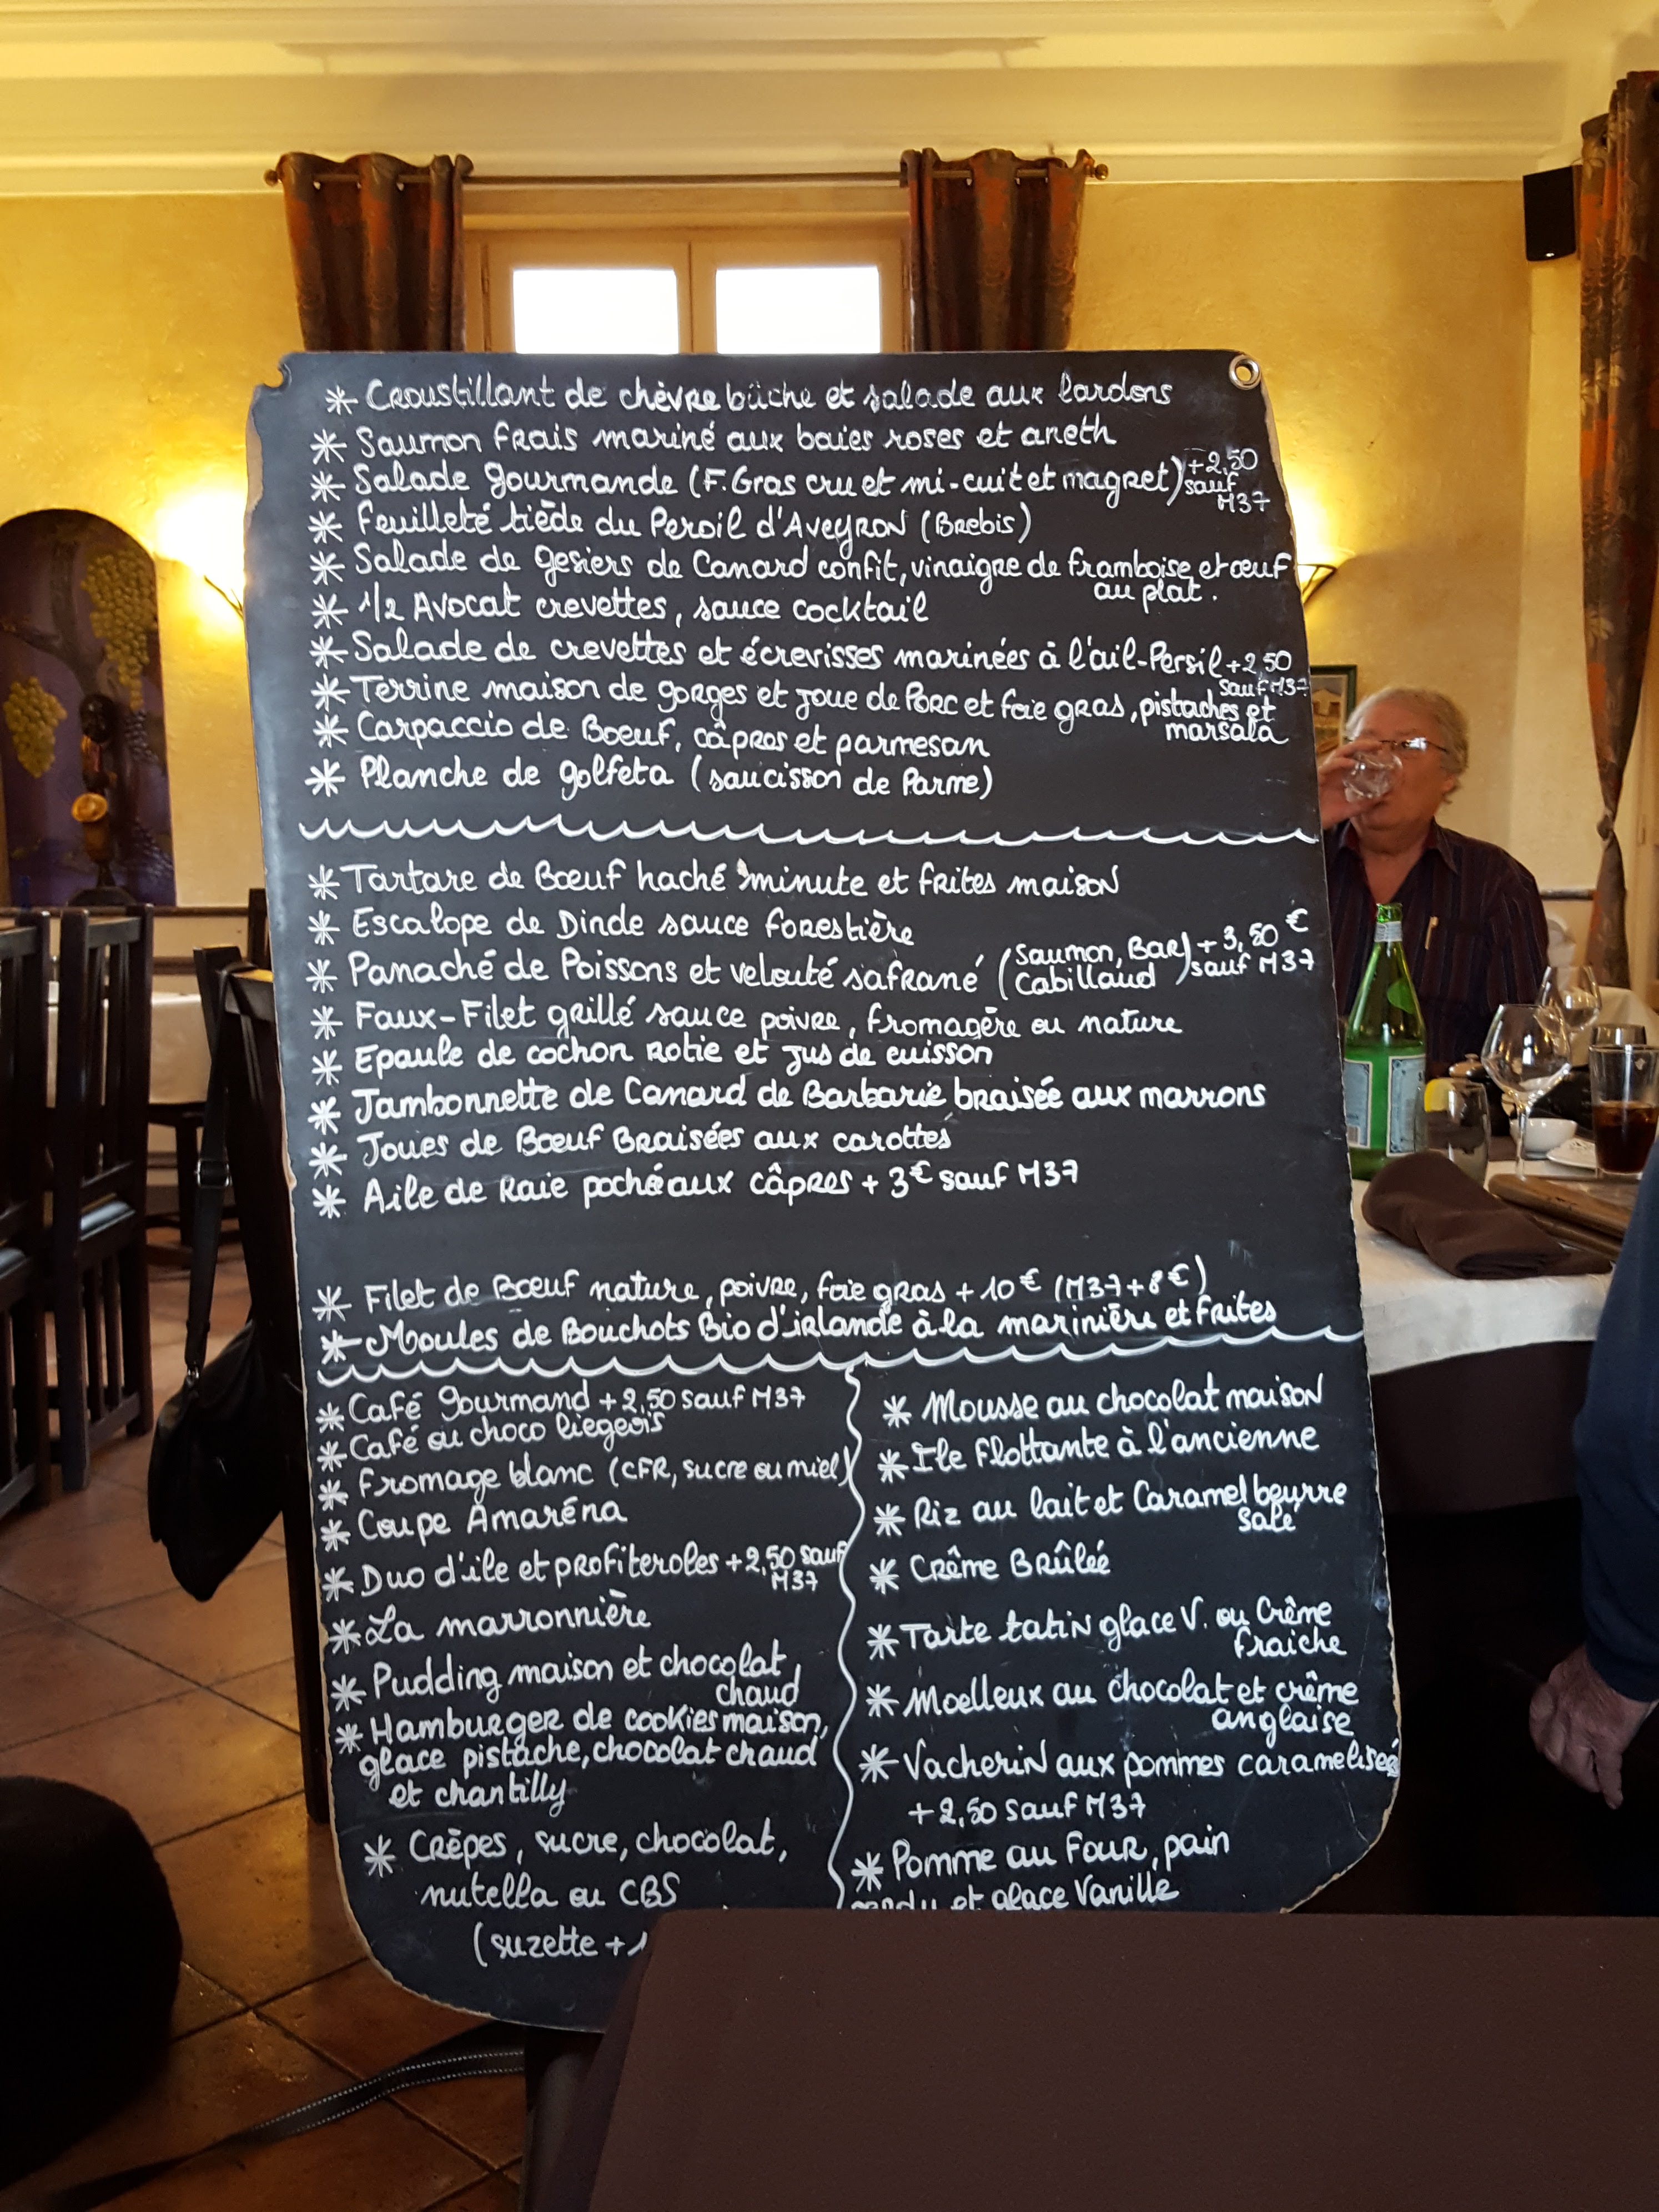 * Croustillant de chèvre bûche et salade aux lardons
* Saumon frais mariné aux baies roses et aneth
* Salade gourmande (F. Gras cru et mi-cuit et magret) +2,50
sauf
M37
* Feuilleté tiède du Peroil d'Aveyron (Brebis)
* Salade de gesiers de Canard confit, vinaigre de framboise et œuf
au plat.
* 1/2 Avocat crevettes, sauce cocktail
* Salade de crevettes et écrevisses marinées à l'ail-Persil +2,50
sauf M37
* Terrine maison de gorges et joue de Porc et foie gras, pistaches et
marsala
* Carpaccio de Boeuf, câpres et parmesan
* Planche de golfeta (saucisson de Parme)
* Tartare de Bœuf haché minute et frites maison
* Escalope de Dinde sauce forestière
* Panaché de Poissons et velouté safrané (Saumon, Bar) + 3,50 €
Cabillaud sauf M37
* Faux-Filet grillé sauce poivre, fromagère ou nature
* Epaule de cochon rotie et jus de cuisson
* Jambonnette de Canard de Barbarie braisée aux marrons
* Joues de Bœuf Braisées aux carottes
* Aile de Raie poché aux câpres + 3€ sauf M37
* Filet de Bœuf nature, poivre, foie gras + 10€ (M37+8€)
* Moules de Bouchots Bio d'irlande à la marinière et frites
* Café gourmand +2,50 sauf M37
* Café ou choco liegeois
* Fromage blanc (CFR, sucre ou miel)
* Coupe Amaréna
* Duo d'ile et profiteroles +2,50 sauf
M37
* La marronnière
* Pudding maison et chocolat
chaud
* Hamburger de cookies maison,
glace pistache, chocolat chaud
et chantilly
* Crêpes, sucre, chocolat,
nutella ou CBS
(suzette +1
* Mousse au chocolat maison
* Ile Flottante à l'ancienne
* Riz au lait et Caramel beurre
salé
* Crême Brûlée
* Tarte tatin glace V. ou Crême
fraiche
* Moelleux au chocolat et crême
anglaise
* Vacherin aux pommes caramelisees
+2,50 sauf M37
* Pomme au Four, pain
perdu et glace Vanille